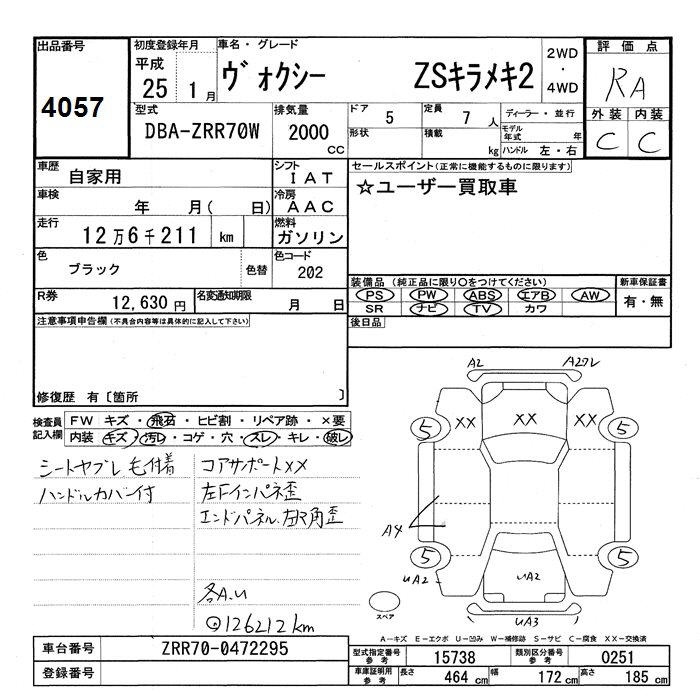 出品番号
4057
初度登録年月
平成
25 1 月
車名・グレード
ヴォクシー ZSキラメキ2
2WD
・
4WD
評価点
RA
外装 内装
C C
型式
DBA-ZRR70W
排気量
2000
cc
ドア 5
定員 7 人
ディーラー・並行
形状
積載 kg
モデル年式 年
ハンドル 左・右
車歴
自家用
シフト
IAT
車検
年 月( 日)
冷房
AAC
走行
12万6千211 km
燃料
ガソリン
色
ブラック
色替
色コード
202
R券
12,630 円
名変通知期限
月 日
セールスポイント(正常に機能するものに限ります)
☆ユーザー買取車
装備品 (純正品に限り〇をつけてください)
PS PW ABS エアB AW
SR ナビ TV カワ
新車保証書
有・無
後日品
注意事項申告欄(不具合内容等は具体的に記入して下さい)
修復歴 有〔箇所 〕
検査員
記入欄
FW キズ・飛石・ヒビ割・リペア跡・×要
内装 キズ・汚レ・コゲ・穴・スレ・キレ・破レ
シートヤブレ 毛付着
ハンドルカバー付
コアサポートXX
左Fインパネ歪
エンドパネル、左R角歪
各A.U
⊙126212km
A2 A2ワレ
XX XX XX
5 5
A4
5 5
UA2 UA2
UA3
スペア
A-キズ E-エクボ U-凹み W-補修跡 S-サビ C-腐食 XX-交換済
車台番号
ZRR70-0472295
登録番号
型式指定番号
参考
15738
類別区分番号
参考
0251
車庫証明用
参考
長さ 464 cm
幅 172 cm
高さ 185 cm